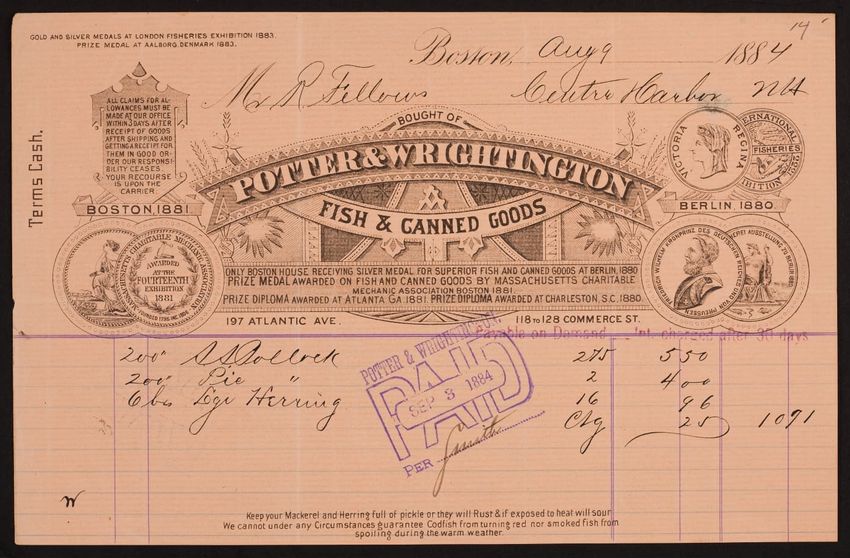 14
GOLD AND SILVER MEDALS AT LONDON FISHERIES EXHIBITION 1883.
PRIZE MEDAL AT AALBORG, DENMARK 1883.
Boston, Aug 9 1884
Mr R Fellows Centre Harbor NH
Terms Cash.
ALL CLAIMS FOR AL-
LOWANCES MUST BE
MADE AT OUR OFFICE
WITHIN 3 DAYS AFTER
RECEIPT OF GOODS
AFTER SHIPPING AND
GETTING A RECEIPT FOR
THEM IN GOOD OR-
DER OUR RESPONSI-
BILITY CEASES.
YOUR RECOURSE
IS UPON THE
CARRIER.
BOUGHT OF
POTTER & WRIGHTINGTON
FISH & CANNED GOODS
VICTORIA REGINA
FISHERIES
BOSTON, 1881
BERLIN, 1880.
MASSACHUSETTS CHARITABLE MECHANIC ASSOCIATION
AWARDED
AT THE
FOURTEENTH
EXHIBITION
1881
FRIEDRICH WILHELM KRONPRINZ DES DEUTSCHEN REICHES UND VON PREUSSEN
ONLY BOSTON HOUSE RECEIVING SILVER MEDAL FOR SUPERIOR FISH AND CANNED GOODS AT BERLIN, 1880
PRIZE MEDAL AWARDED ON FISH AND CANNED GOODS BY MASSACHUSETTS CHARITABLE
MECHANIC ASSOCIATION BOSTON 1881.
PRIZE DIPLOMA AWARDED AT ATLANTA GA 1881. PRIZE DIPLOMA AWARDED AT CHARLESTON, S.C. 1880.
197 ATLANTIC AVE. 118 TO 128 COMMERCE ST.
Payable on Demand Int. charged after 30 days
200" Pollock 275 550
200" Pic " 2 400
6 bxs Lge Herring 16 96
Ctg 25 1071
POTTER & WRIGHTINGTON
PAID
SEP 3 1884
PER Smith
Keep your Mackerel and Herring full of pickle or they will Rust & if exposed to heat will sour
We cannot under any Circumstances guarantee Codfish from turning red nor smoked fish from
spoiling during the warm weather.